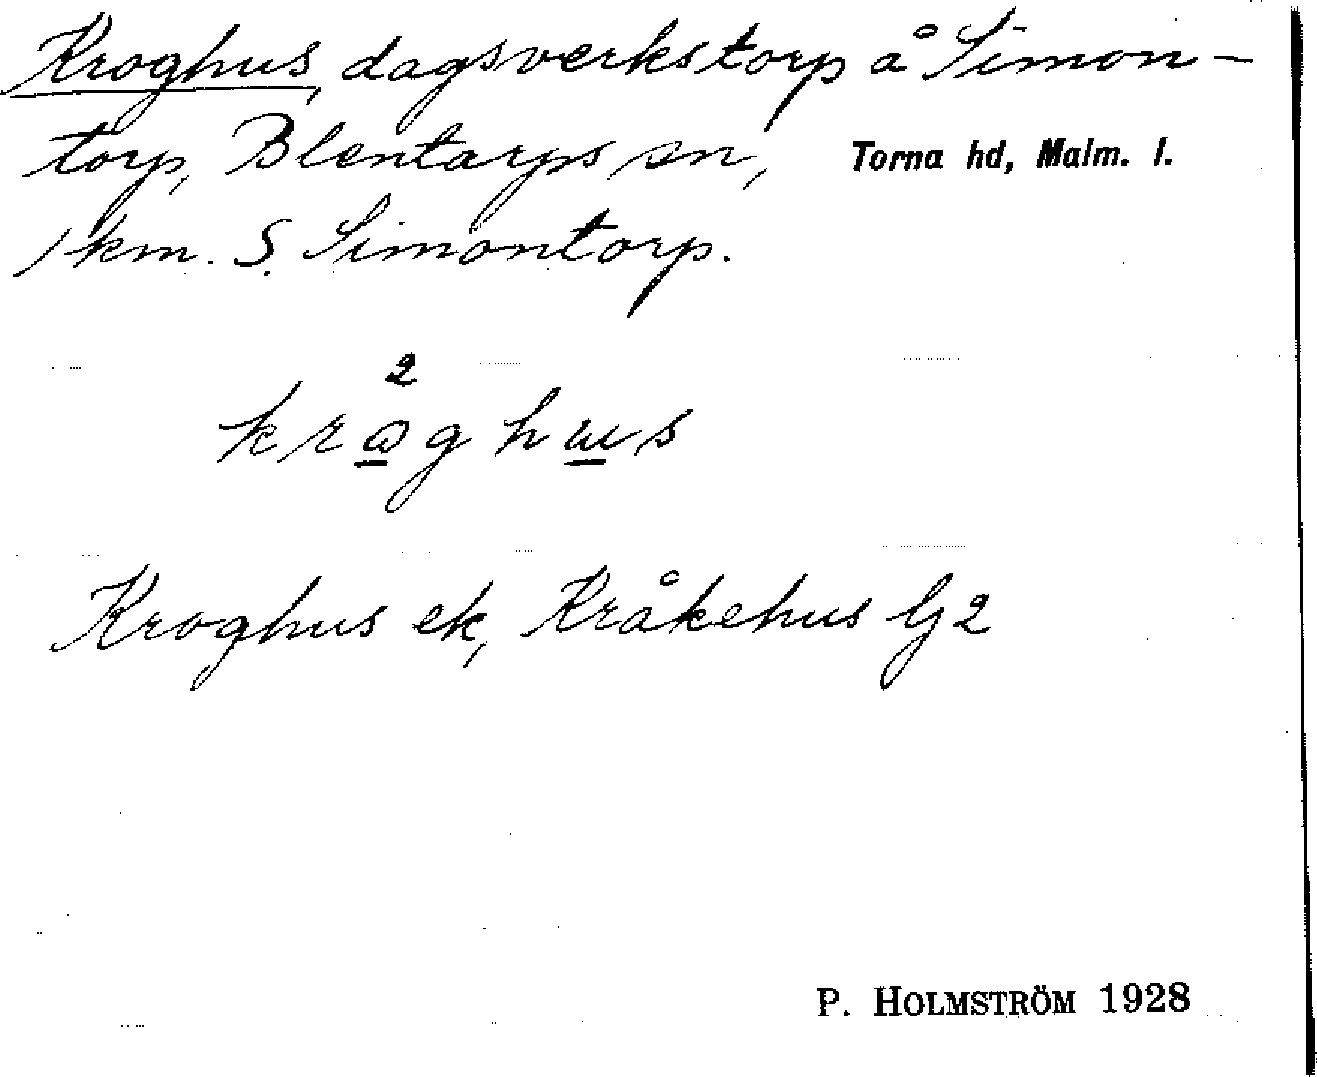 Kroghus, dagsverkstorp å Simon-
torp, Blentarps sn, Torna hd, Malm. l.
1 km. S. Simontorp.
2
kroghus
Kroghus ek, Kråkehus Gj 2
P. HOLMSTRÖM 1928